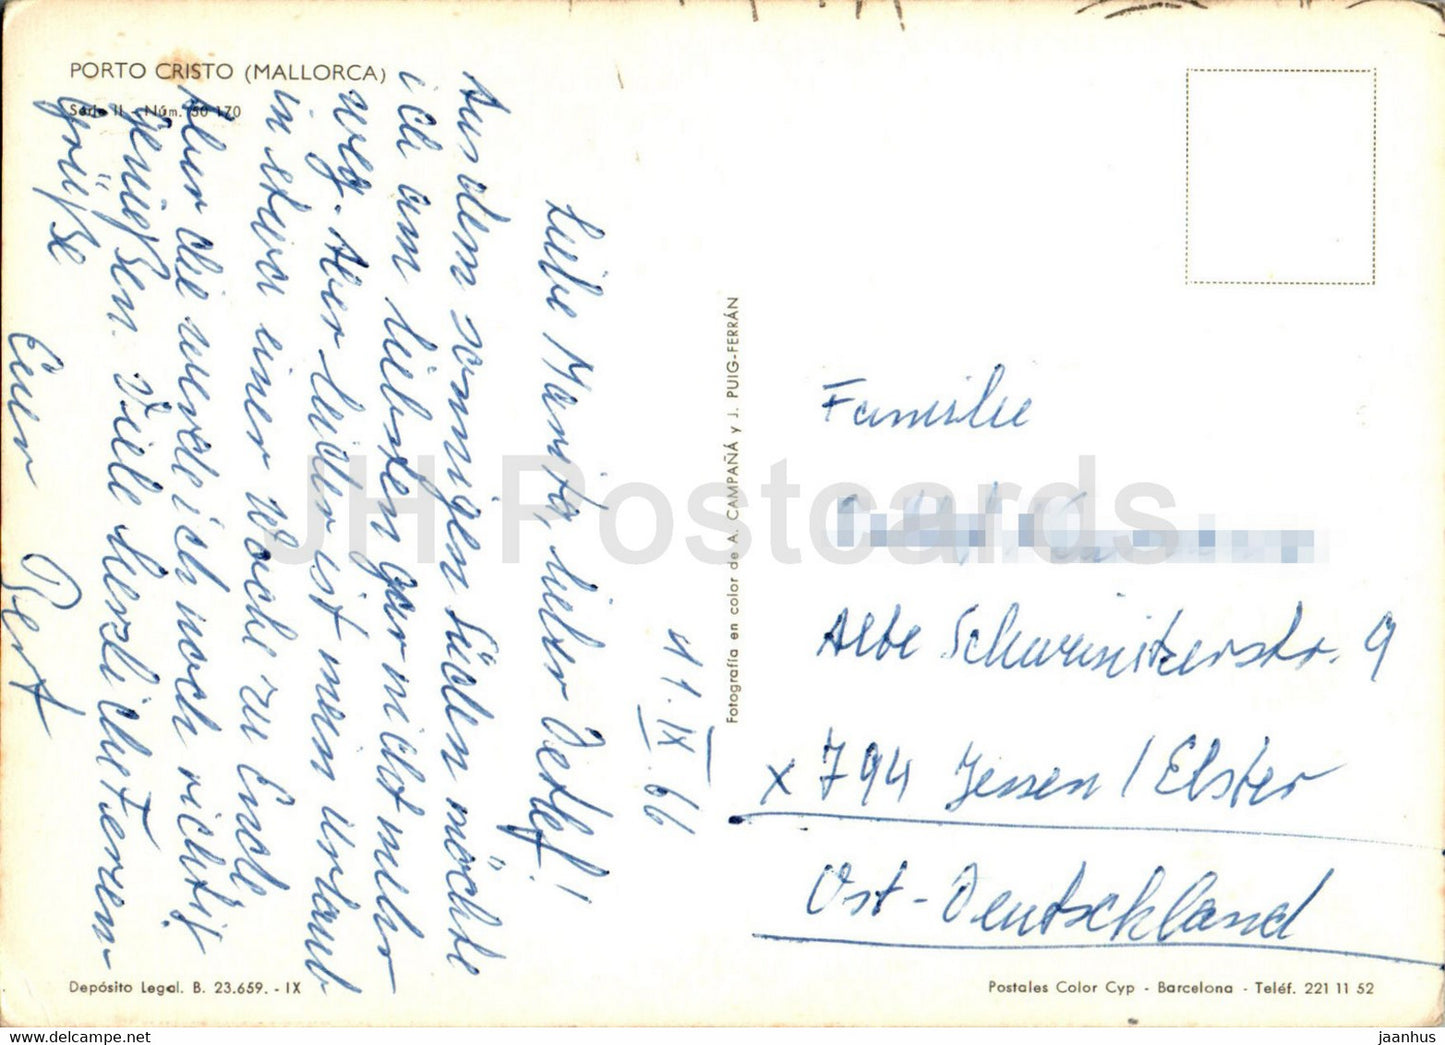 PORTO CRISTO (MALLORCA)
Serie II - Núm. 50 170
11. IX. 66
Liebe Marita, lieber Detlef!
Aus dem sonnigen Süden möchte
ich am liebsten gar nicht mehr
weg. Aber leider ist mein Urlaub
in etwa einer Woche zu Ende,
Aber die werde ich noch richtig
genießen. Viele herzliche Ferien-
grüße
Euer Gert
Fotografía en color de A. CAMPAÑÁ y J. PUIG-FERRÁN
Familie
Alte Schweinitzerstr. 9
x 794 Jessen / Elster
Ost-Deutschland
Depósito Legal. B. 23.659. - IX
Postales Color Cyp - Barcelona - Teléf. 221 11 52
JH Postcards
https://www.delcampe.net
jaanhus